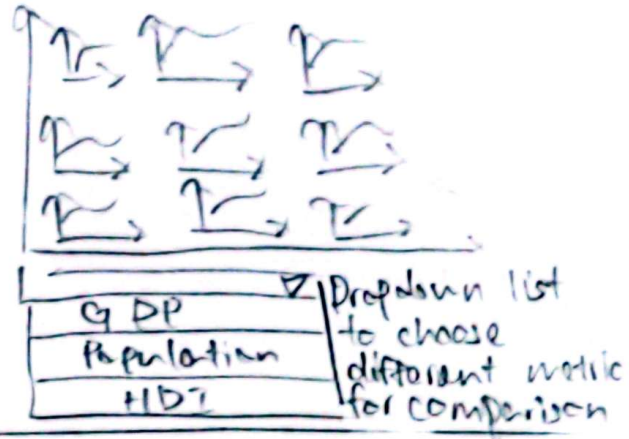 GDP
Population
HDI
Dropdown list
to choose
different metric
for comparison